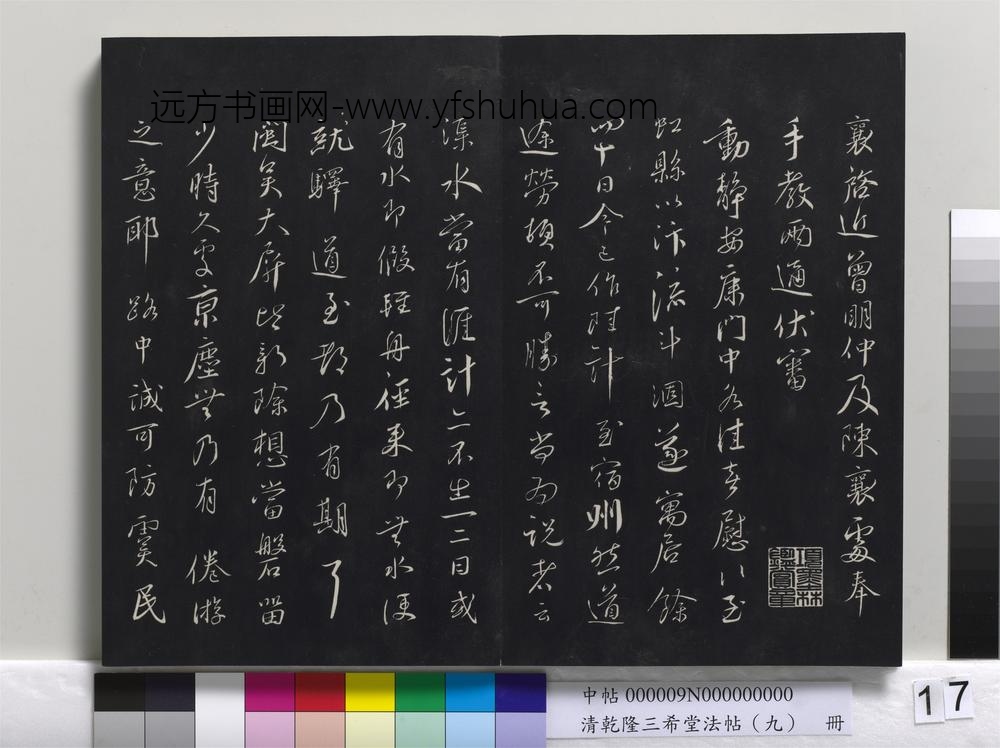 襄啓近曾明仲及陳襄處奉
手教兩通伏審
動靜安康門中各佳喜慰以至
虹縣以汴流斗涸遂寓居餘
四十日今已作陸計至宿州然道
途勞頓不可勝言尚為說者云
渠水當有涯計亦不出一二日或
有水即假輕舟徑來即無水便
就驛道至都乃有期了
聞吳大屏比新除想當磐留
少時久處京塵無乃有倦游
之意耶路中誠可防虞民
項墨林鑑賞章
远方书画网-www.yfshuhua.com
中帖 000009N000000000
清乾隆三希堂法帖（九） 冊
17